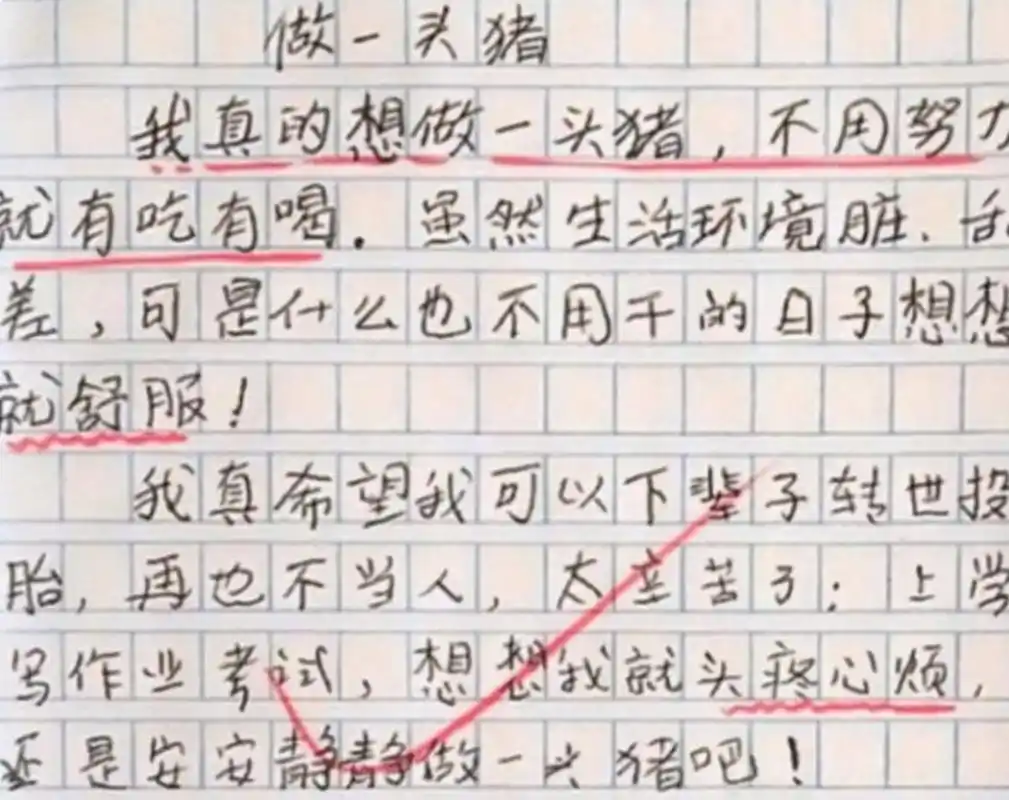 做一头猪
我真的想做一头猪，不用努力
就有吃有喝．虽然生活环境脏、乱
差，可是什么也不用干的日子想想
就舒服！
我真希望我可以下辈子转世投
胎，再也不当人，太辛苦了：上学
写作业考试，想想我就头疼心烦，
还是安安静静做一头猪吧！